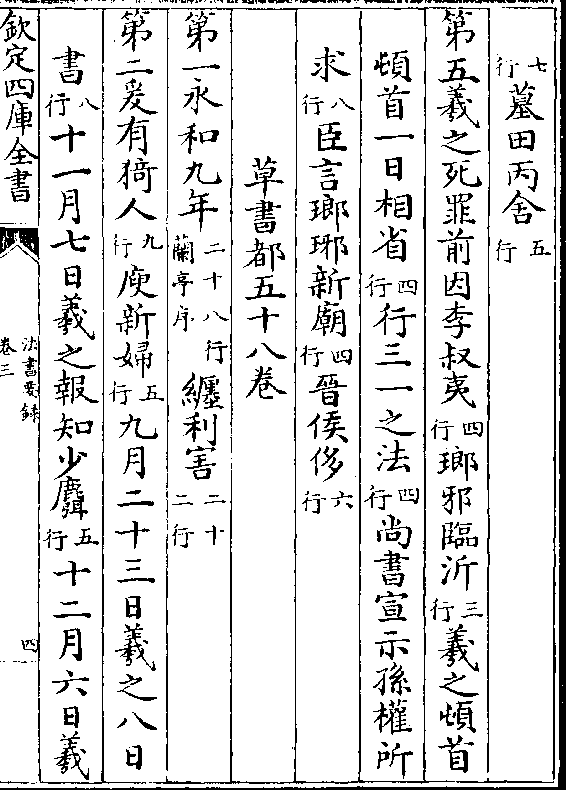 七行墓田丙舍五行
第五羲之死罪前因李叔夷四行瑯邪臨沂三行羲之頓首
頓首一日相省四行行三一之法四行尚書宣示孫權所
求八行臣言瑯琊新廟四行晉侯侈六行
草書都五十八卷
第一永和九年二十八行蘭亭序纏利害二十二行
第二爰有猗人九行庾新婦五行九月二十三日羲之八日
書八行十一月七日羲之報知少五行十二月六日羲
欽定四庫全書
法書要錄
卷三
四